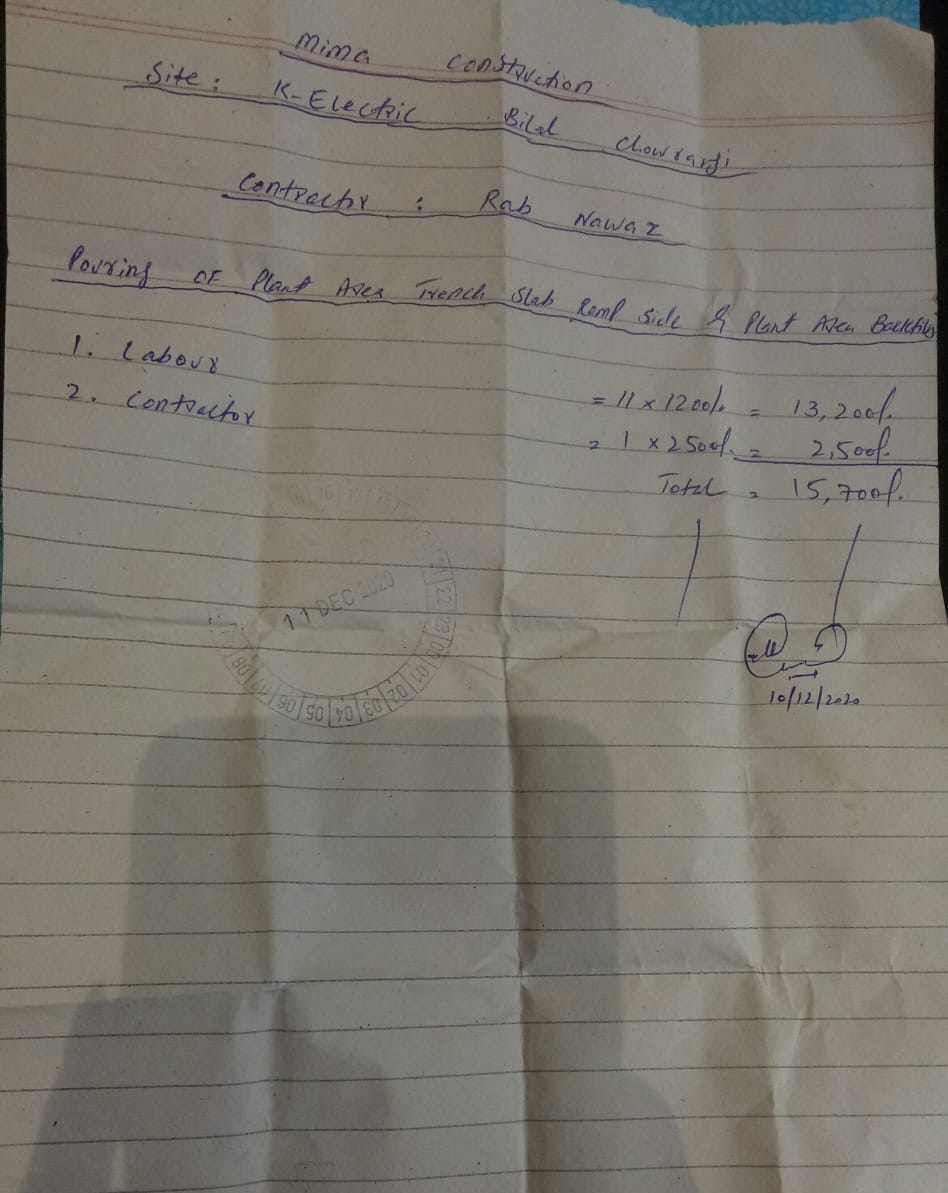 Mima Construction
Site: K-Electric Bilal Chowrangi
Contractor : Rab Nawaz
Pouring OF Plant Area Trench Slab Ramp Side & Plant Area Backfill
1. Labour = 11 x 1200/. = 13,200/.
2. Contractor = 1 x 2500/. = 2,500/.
Total = 15,700/.
11 DEC 2020
21 22 23 00 01 02 03 04 05 06 07 08
10/12/2020